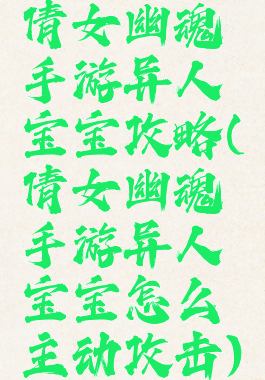 倩女幽魂
手游异人
宝宝攻略(
倩女幽魂
手游异人
宝宝怎么
主动攻击)